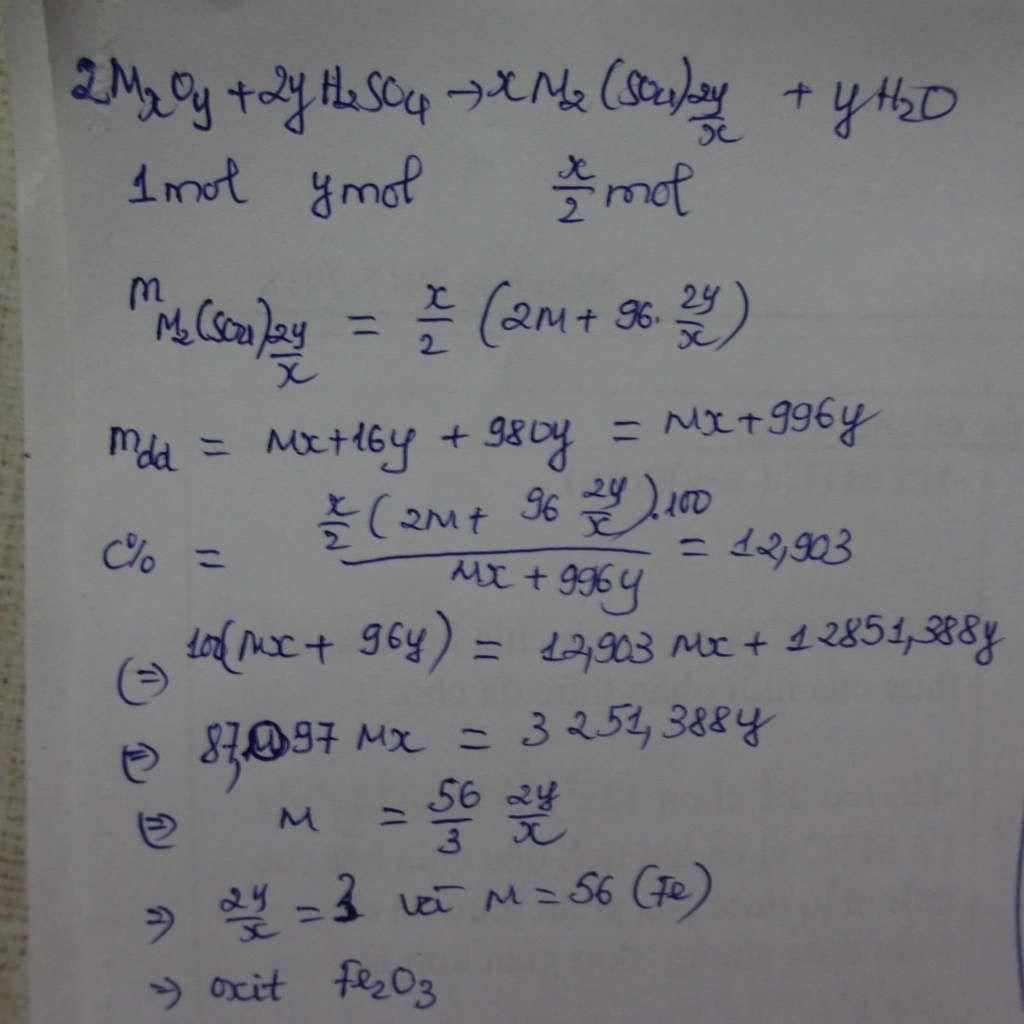 2MxOy + 2yH2SO4 → xM2(SO4)2y/x + yH2O
1mol ymol x/2 mol
mM2(SO4)2y/x = x/2 (2M + 96. 2y/x)
mdd = Mx+16y + 980y = Mx+996y
C% = x/2 (2M + 96 2y/x).100 / Mx + 996y = 12,903
(=) 100(Mx + 96y) = 12,903 Mx + 12851,388y
(=) 87,097 Mx = 3251,388y
(=) M = 56/3 2y/x
=> 2y/x = 3 và M = 56 (Fe)
=> oxit Fe2O3